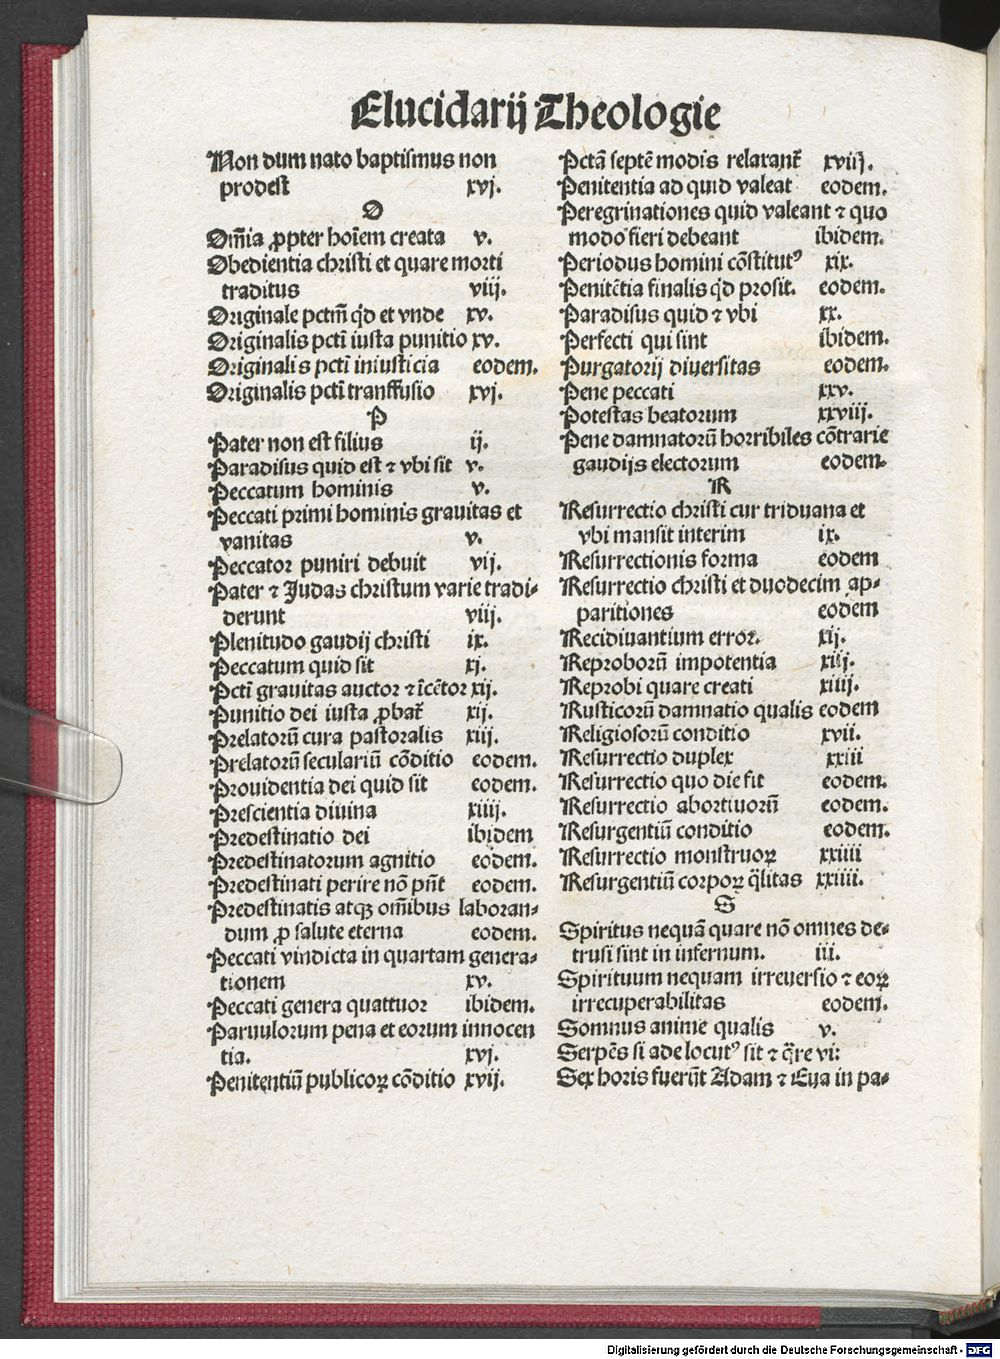 Elucidarij Theologie
Non dum nato baptismus non
prodest xvj.
O
Oīm̄ia ꝓpter hoīem creata v.
Obedientia christi et quare morti
traditus viij.
Originale pctm̄ qd̓ et vnde xv.
Originalis pcti iusta punitio xv.
Originalis pcti iniusticia eodem.
Originalis pcti transfusio xvj.
P
Pater non est filius ij.
Paradisus quid est ⁊ vbi sit v.
Peccatum hominis v.
Peccati primi hominis grauitas et
vanitas v.
Peccator puniri debuit vij.
Pater ⁊ Judas christum varie tradi-
derunt viij.
Plenitudo gaudij christi ix.
Peccatum quid sit xj.
Pcti grauitas auctor ⁊ īcētor xij.
Punitio dei iusta ꝓbat̄ xij.
Prelatorū cura pastoralis xiij.
Prelatorū seculariū cōditio eodem.
Prouidentia dei quid sit eodem.
Prescientia diuina xiiij.
Predestinatio dei ibidem
Predestinatorum agnitio eodem.
Predestinati perire nō pn̄t eodem.
Predestinatis atqꝫ om̄ibus laboran-
dum ꝓ salute eterna eodem.
Peccati vindicta in quartam genera-
tionem xv.
Peccati genera quattuor ibidem.
Paruulorum pena et eorum innocen
tia. xvj.
Penitentiū publicoꝝ cōditio xvij.
Pctā septē modis relaxant̄ xviij.
Penitentia ad quid valeat eodem.
Peregrinationes quid valeant ⁊ quo
modo fieri debeant ibidem.
Periodus homini cōstitutꝰ xix.
Penitētia finalis qd̓ prosit. eodem.
Paradisus quid ⁊ vbi xx.
Perfecti qui sint ibidem.
Purgatorij diuersitas eodem.
Pene peccati xxv.
Potestas beatorum xxviij.
Pene damnatorū horribiles cōtrarie
gaudijs electorum eodem.
R
Resurrectio christi cur triduana et
vbi mansit interim ix.
Resurrectionis forma eodem
Resurrectio christi et duodecim ap-
paritiones eodem
Recidiuantium error. xij.
Reproborū impotentia xiij.
Reprobi quare creati xiiij.
Rusticorū damnatio qualis eodem
Religiosorū conditio xvij.
Resurrectio duplex xxiij
Resurrectio quo die fit eodem.
Resurrectio abortiuorū eodem.
Resurgentiū conditio eodem.
Resurrectio monstruoꝝ xxiiij
Resurgentiū corpoꝝ q̄litas xxiiij.
S
Spiritus nequā quare nō omnes de-
trusi sint in infernum. iij.
Spirituum nequam irreuersio ⁊ eoꝝ
irrecuperabilitas eodem.
Somnus anime qualis v.
Serpēs si ade locutꝰ sit ⁊ q̄re vi:
Sex horis fuerūt Adam ⁊ Eua in pa-
Digitalisierung gefördert durch die Deutsche Forschungsgemeinschaft - DFG